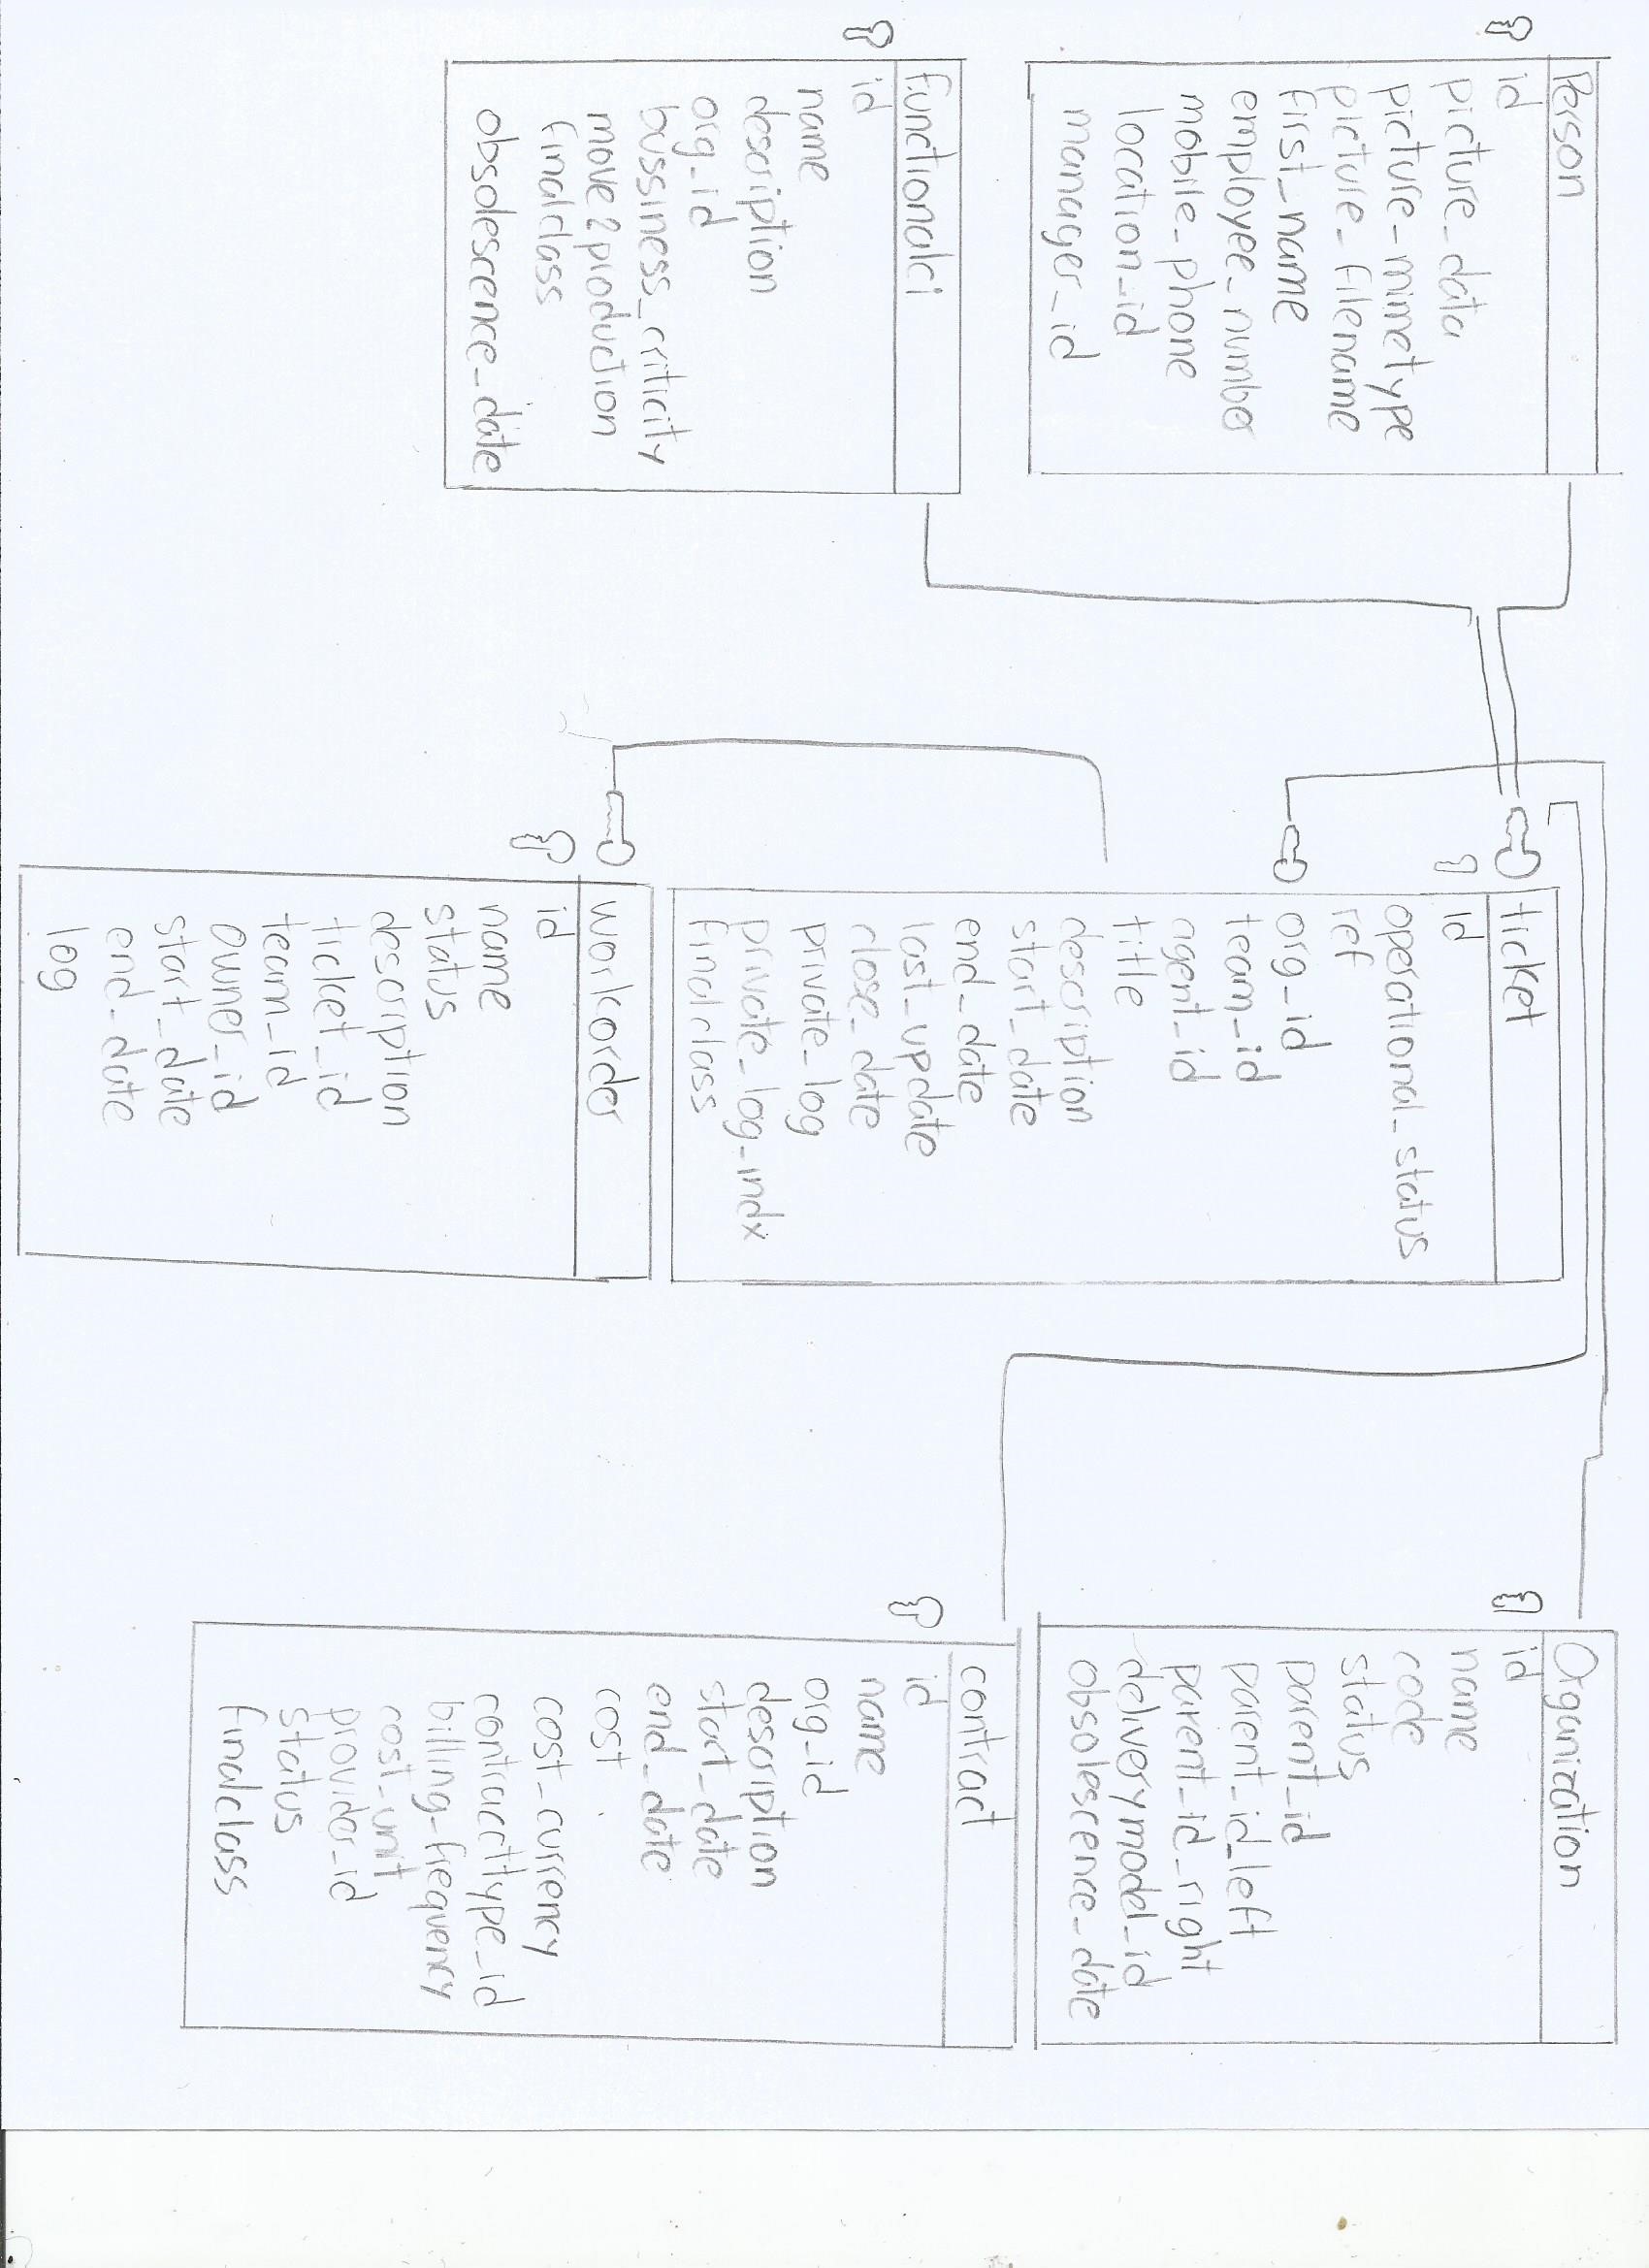 Person
id
picture_data
picture_mimetype
picture_filename
first_name
employee_number
mobile_phone
location_id
manager_id
functionalci
id
name
description
org_id
bussiness_criticity
move2production
finalclass
obsolescence_date
ticket
id
operational_status
ref
org_id
team_id
agent_id
title
description
start_date
end_date
last_update
close_date
private_log
private_log_indx
finalclass
workorder
id
name
status
description
ticket_id
team_id
owner_id
start_date
end_date
log
Organization
id
name
code
status
parent_id
parent_id_left
parent_id_right
deliverymodel_id
obsolescence_date
contract
id
name
org_id
description
start_date
end_date
cost
cost_currency
contracttype_id
billing_frequency
cost_unit
provider_id
status
finalclass